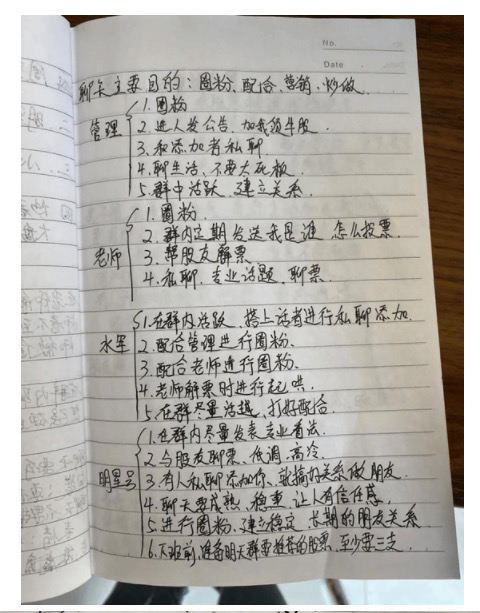 No.
Date
聊天主要目的：圈粉、配合、营销、炒做
管理
1.圈粉
2.进人发公告，加我领牛股
3.和添加者私聊
4.聊生活、不要太死板
5.群中活跃、建立关系
老师
1.圈粉
2.群内定期发送我是谁 怎么投票
3.帮股友解票
4.私聊、专业话题、聊票
水军
1.在群内活跃、搭上话者进行私聊添加
2.配合管理进行圈粉
3.配合老师进行圈粉
4.老师解票时进行起哄
5.在群尽量活越，打好配合
明星号
1.在群内尽量发表专业看法
2.与股友聊票、低调、高冷
3.有人私聊添加你、就搞好关系做朋友
4.聊天要成熟、稳重、让人有信任感
5.进行圈粉、建立稳定 长期的朋友关系
6.下班前，准备明天群要推荐的股票，至少要三支